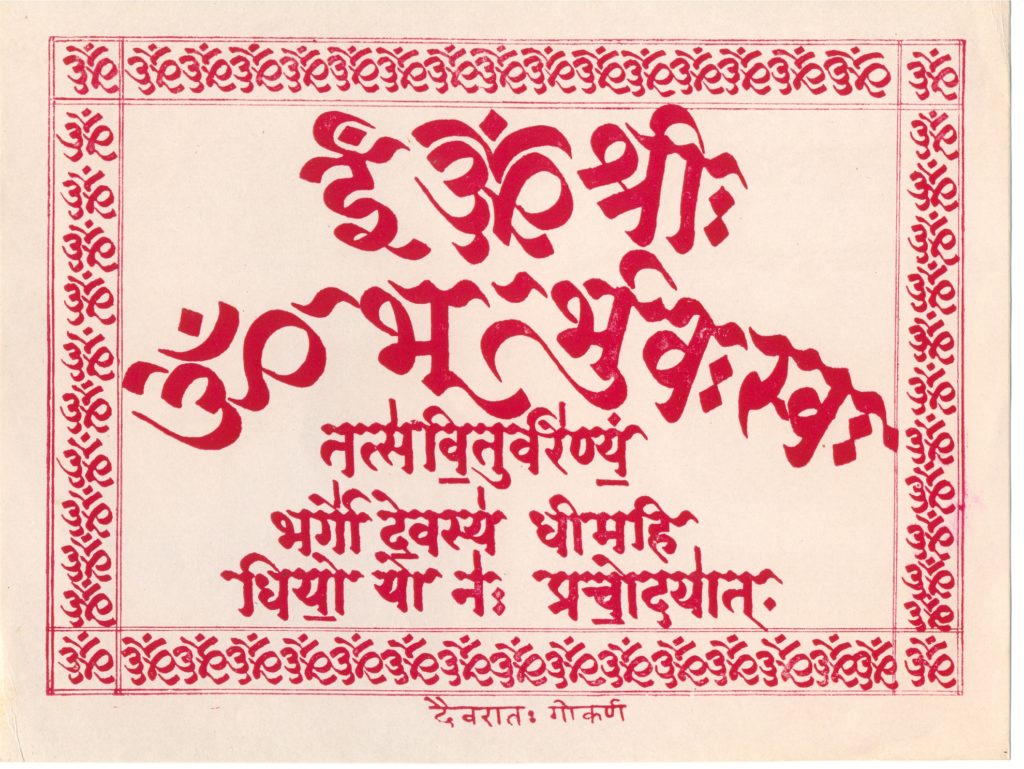 ईं ॐ श्रीः
ॐ भूर्भुवः स्वः
तत्स॑वि॒तुर्वरे॑ण्यं॒
भर्गो॑ दे॒वस्य॑ धीमहि
धियो॒ यो नः॑ प्रचो॒दया॑त्
दैवरातः गोकर्ण